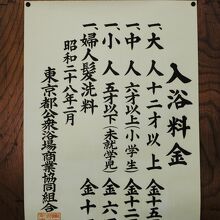 入浴料金
一、大人 十二才以上 金十五
一、中人 六才以上(小学生) 金十二
一、小人 五才以下(未就学児) 金六
一、婦人髪洗料 金十
昭和二十八年二月
東京都公衆浴場商業協同組合